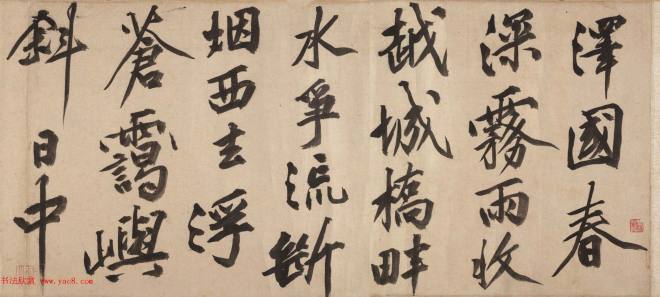 澤國春
深霧雨收
越城橋畔
水爭流斷
烟西去浮
蒼靄嶼
斜日中
书法欣赏
www.yac8.com